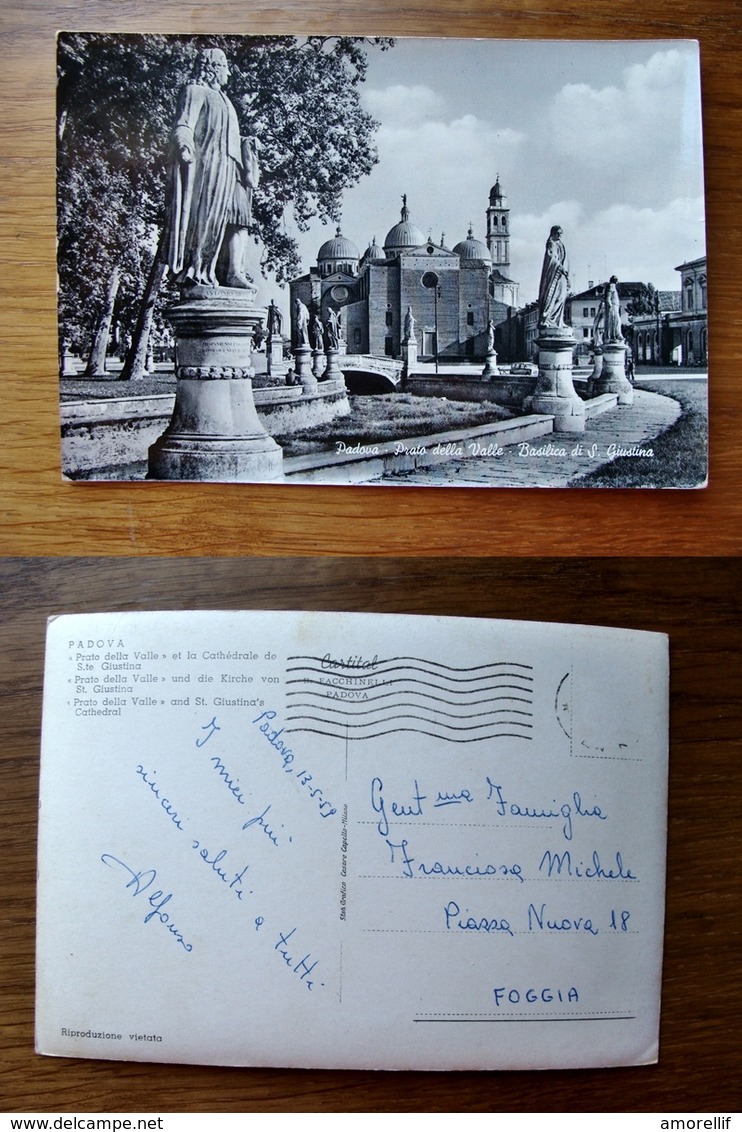 Padova - Prato della Valle - Basilica di S. Giustina
PADOVA
« Prato della Valle » et la Cathédrale de
S.te Giustina
« Prato della Valle » und die Kirche von
St. Giustina
« Prato della Valle » and St. Giustina's
Cathedral
Cartital
FACCHINELLI
PADOVA
Padova, 13-5-59
I miei più
sinceri saluti a tutti
Alfonso
Stab. Grafico Cesare Capello-Milano
Gent.ma Famiglia
Franciosa Michele
Piazza Nuova 18
FOGGIA
Riproduzione vietata
amorellif
delcampe.net